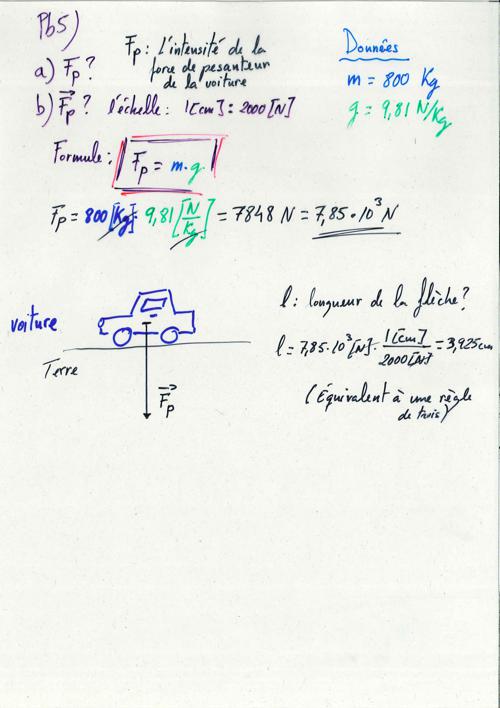 Pb5)
a) Fp ?
Fp : L'intensité de la
force de pesanteur
de la voiture
b) F⃗p ? l'échelle : 1[cm] : 2000 [N]
Données
m = 800 Kg
g = 9,81 N/Kg
Formule : Fp = m·g
Fp = 800 [Kg] · 9,81 [N/Kg] = 7848 N = 7,85·10³ N
voiture
Terre
F⃗p
l : longueur de la flèche ?
l = 7,85·10³ [N] · 1[cm]/2000[N] = 3,925 cm
(Équivalent à une règle
de trois)